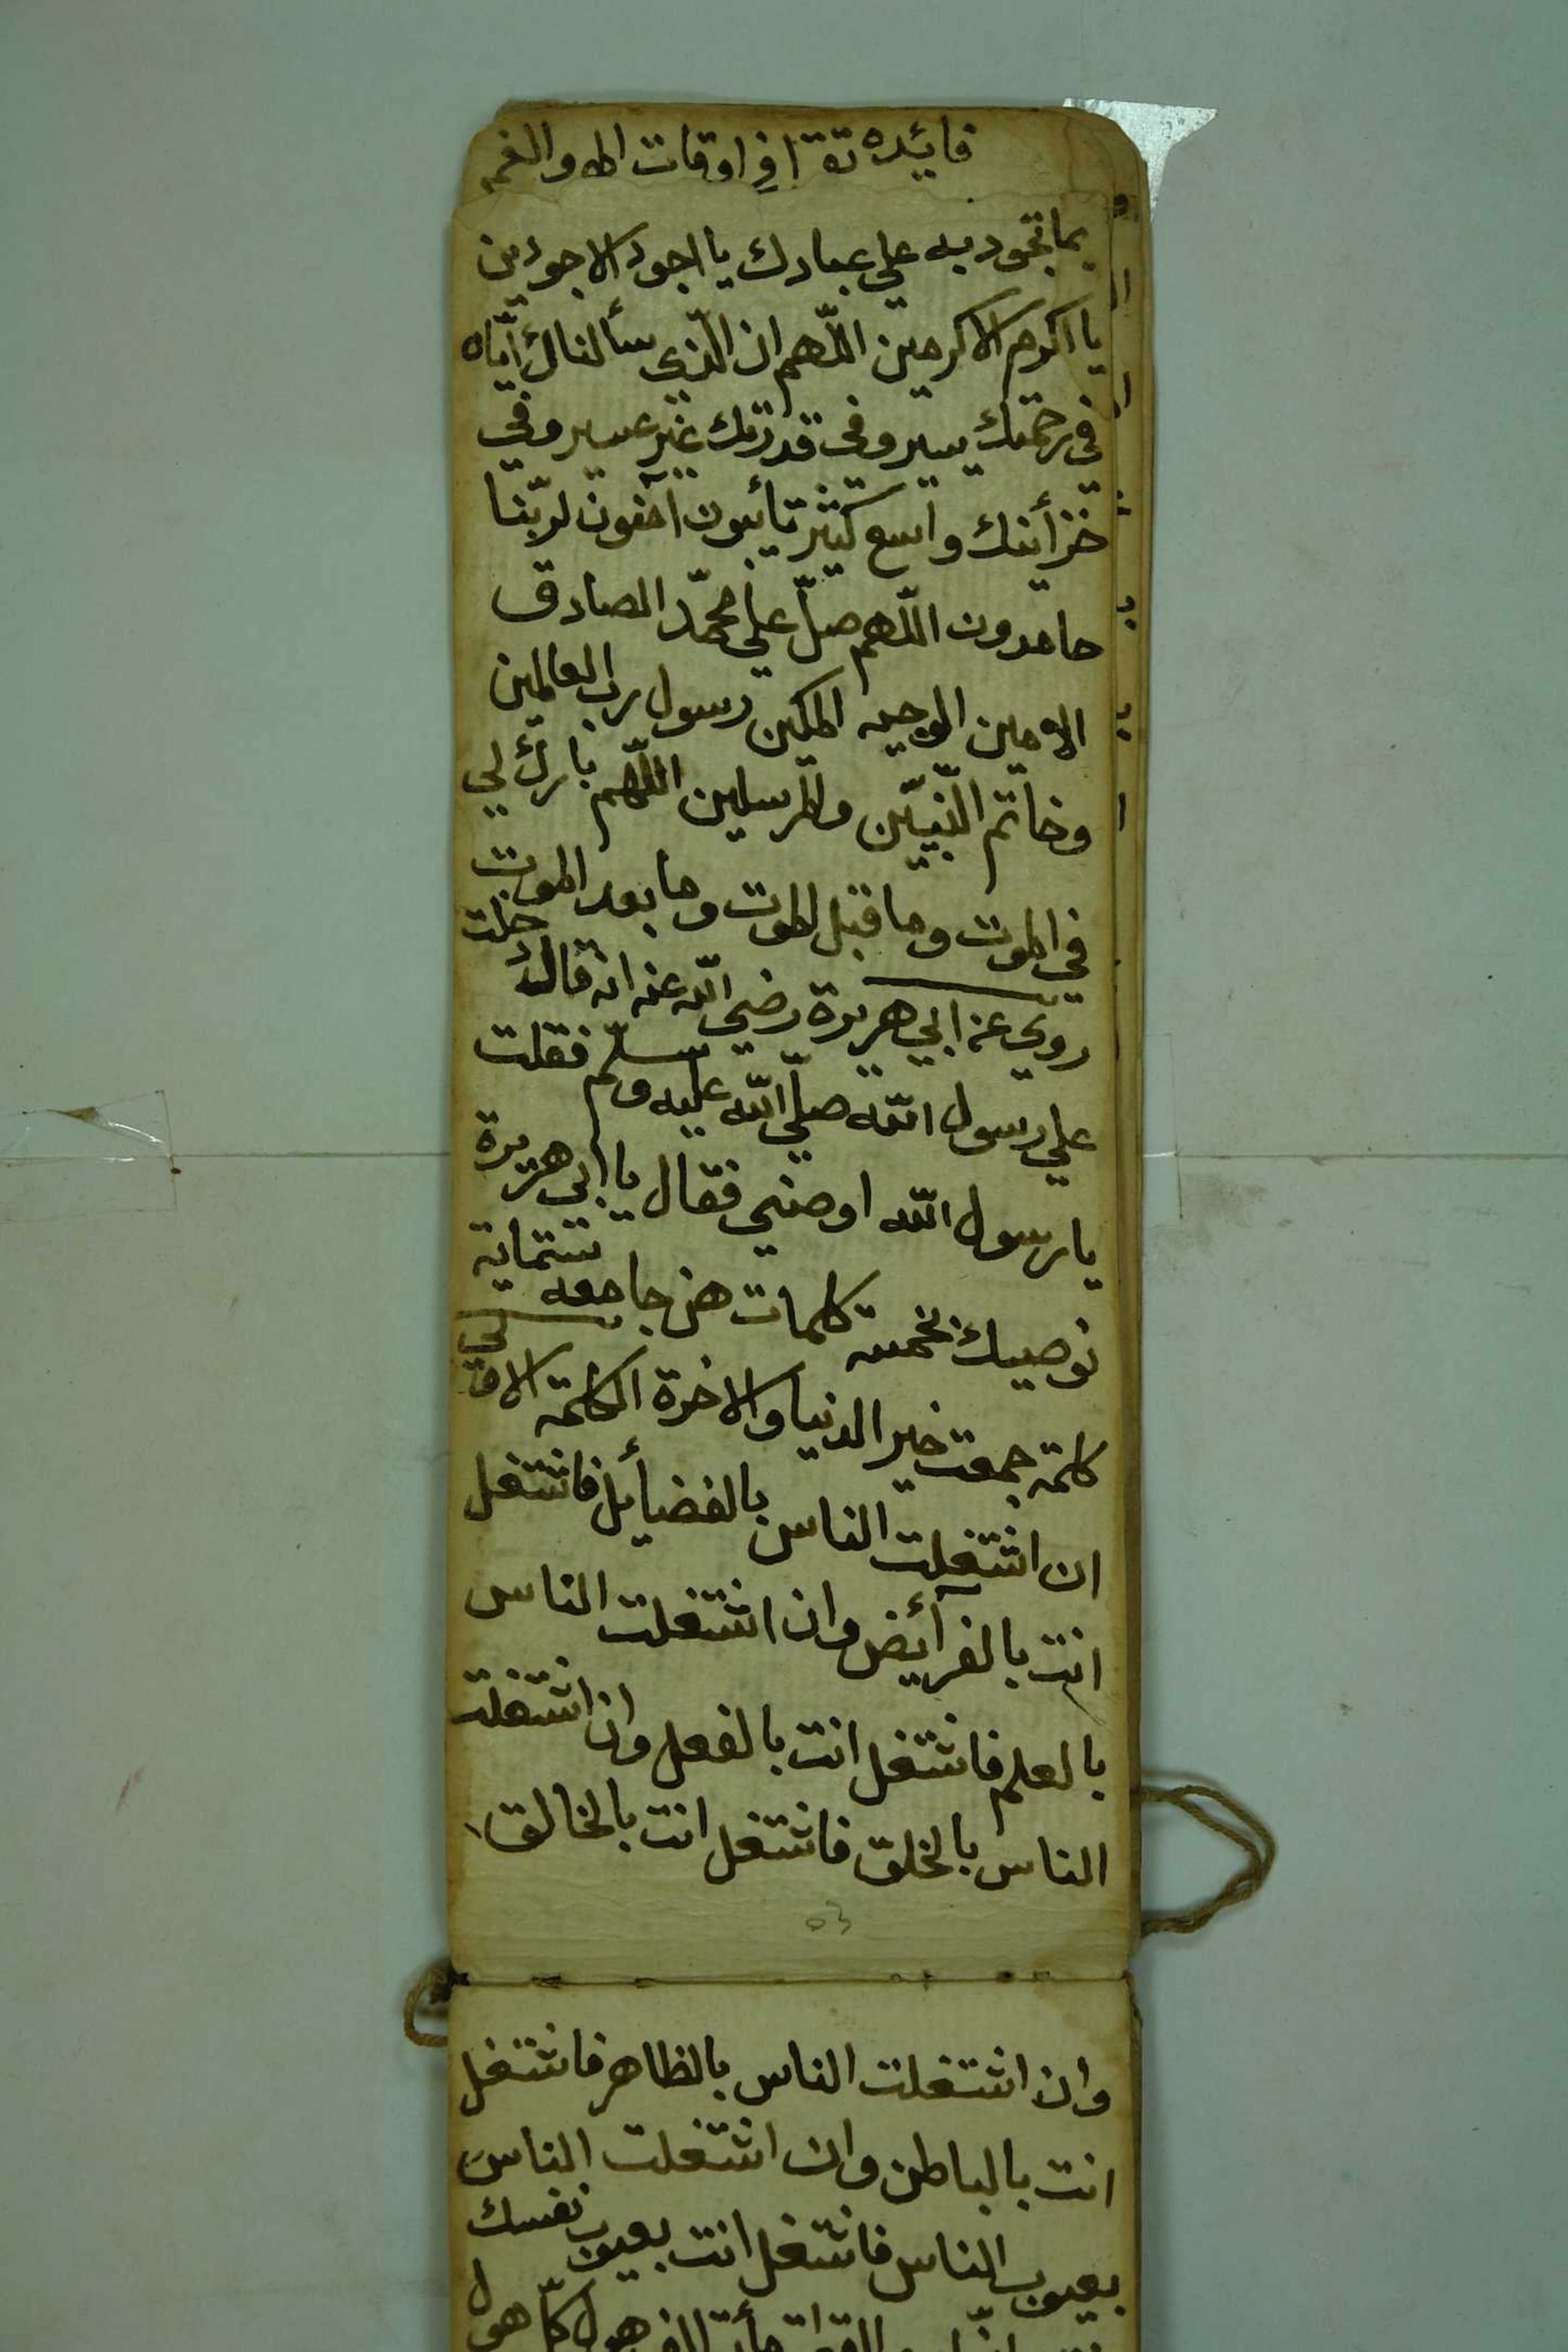 فايده تقرا في اوقات الهم والغم
بما تجود به علي عبادك يا اجود الاجودين
يا اكرم الاكرمين اللّهم ان الّذي سألناك ايّاه
في رحمتك يسير وفي قدرتك غير عسير وفي
خزأينك واسع كثير تايبون آمنون لربّنا
حامدون اللّهم صلّ علي محمّد الصادق
الامين الوجيه المكين رسول رب العالمين
وخاتم النّبيّن والمرسلين اللّهم بارك لي
في الموت وما قبل الموت وما بعد الموت
روي عن ابي هريرة رضي اللّه عنه انه قال دخلت
علي رسول اللّه صلّي اللّه عليه وسلّم فقلت
يا رسول اللّه اوصني فقال يا ابي هريرة
نوصيك بخمسة كلمات هن جامعه ستماية
كلمة جمعت خير الدنيا والاخرة الكلمة الاولي
ان اشتغلت الناس بالفضأيل فاشتغل
انت بالفرأيض وان اشتغلت الناس
بالعلم فاشتغل انت بالفعل وان اشتغلت
الناس بالخلق فاشتغل انت بالخالق
وان اشتغلت الناس بالظاهر فاشتغل
انت بالباطن وان اشتغلت الناس
بعيوب الناس فاشتغل انت بعيوب نفسك